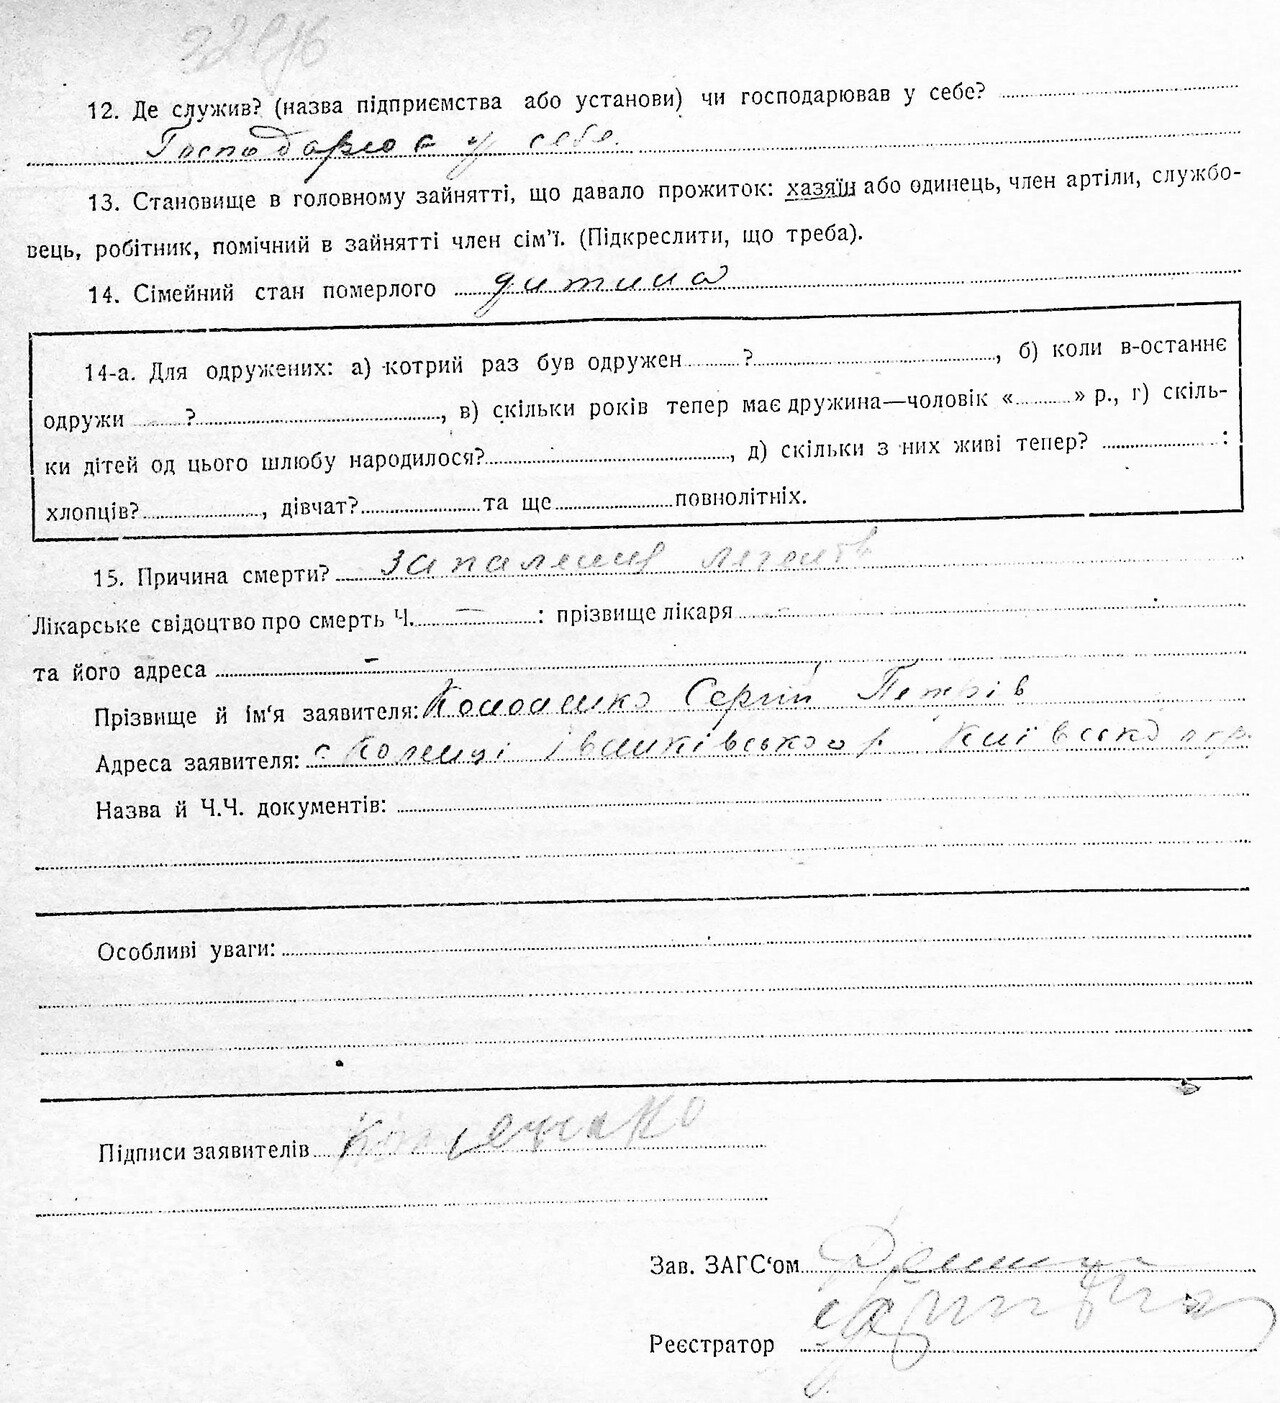 12. Де служив? (назва підприємства або установи) чи господарював у себе?
Господарює у себе.
13. Становище в головному зайнятті, що давало прожиток: хазяїн або одинець, член артіли, службо-
вець, робітник, помічний в зайнятті член сім'ї. (Підкреслити, що треба).
14. Сімейний стан померлого дитина
14-а. Для одружених: а) котрий раз був одружен ? , б) коли в-останнє
одружи ? , в) скільки років тепер має дружина—чоловік « » р., г) скіль-
ки дітей од цього шлюбу народилося? , д) скільки з них живі тепер? :
хлопців? , дівчат? та ще повнолітніх.
15. Причина смерти? запалення легенів
Лікарське свідоцтво про смерть Ч. — : прізвище лікаря —
та його адреса –
Прізвище й ім'я заявителя: Сергій Петрів
Адреса заявителя: с. Коленці Іванківського р. Київсько окр.
Назва й Ч.Ч. документів:
Особливі уваги:
Підписи заявителів
Зав. ЗАГС'ом
Реєстратор